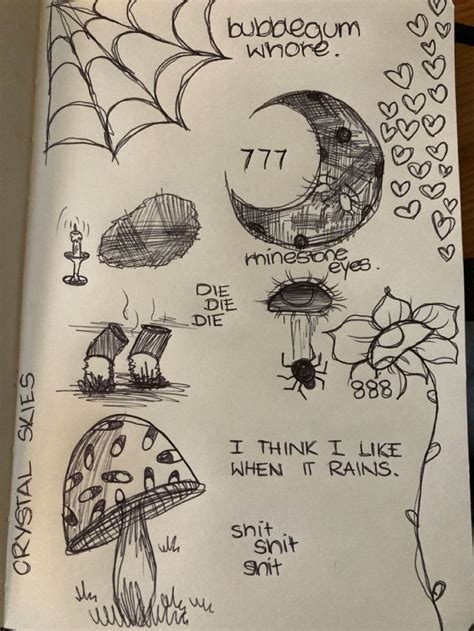 bubblegum
whore.
777
rhinestone
eyes.
DIE
DIE
DIE
888
CRYSTAL SKIES
I THINK I LIKE
WHEN IT RAINS.
shit
shit
shit